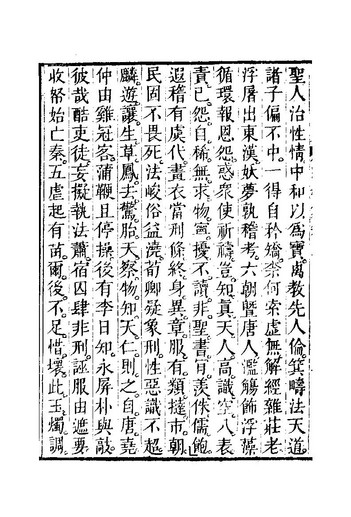 聖人治性情中和以爲寶禼教先人倫箕疇法天道
諸子偏不中一得自矜矯柰何索虛無解經雜莊老
浮屠出東漢妖夢孰稽考六朝曁唐人濫觴飾浮藻
循環報恩怨惑衆使祈禱豈知真天人高識空八表
責已怨自稀無求物寧擾不讀非聖書肯羨侏儒飽
遐稽有虞代畫衣當刑條終身異章服有類撻市朝
民固不畏死法峻俗益澆荀卿疑象刑性惡識不超
麟遊讓生草鳳去驚胎夭察物知天仁則之自唐堯
仲由雞冠客蒲鞭且停操後有李日知永屏朴與敲
彼哉酷吏徒妄擬執法蕭宿囚肆非刑誣服由遮要
收帑始亡秦五虐起有苗爾後不足惜壞此玉燭調